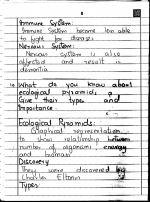 Immune System:
Immune System become less able
to fight for diseases
Nervous System:
Nervous system is also
affected and result in
dementia
What do you know about
ecological pyramids &
Give their types and
Importance
Ecological Pyramids:
Graphical representation
to show relationship between
number of organisms energy
and biomass
Discovery
They were discovered by
Charles Elton
Types: